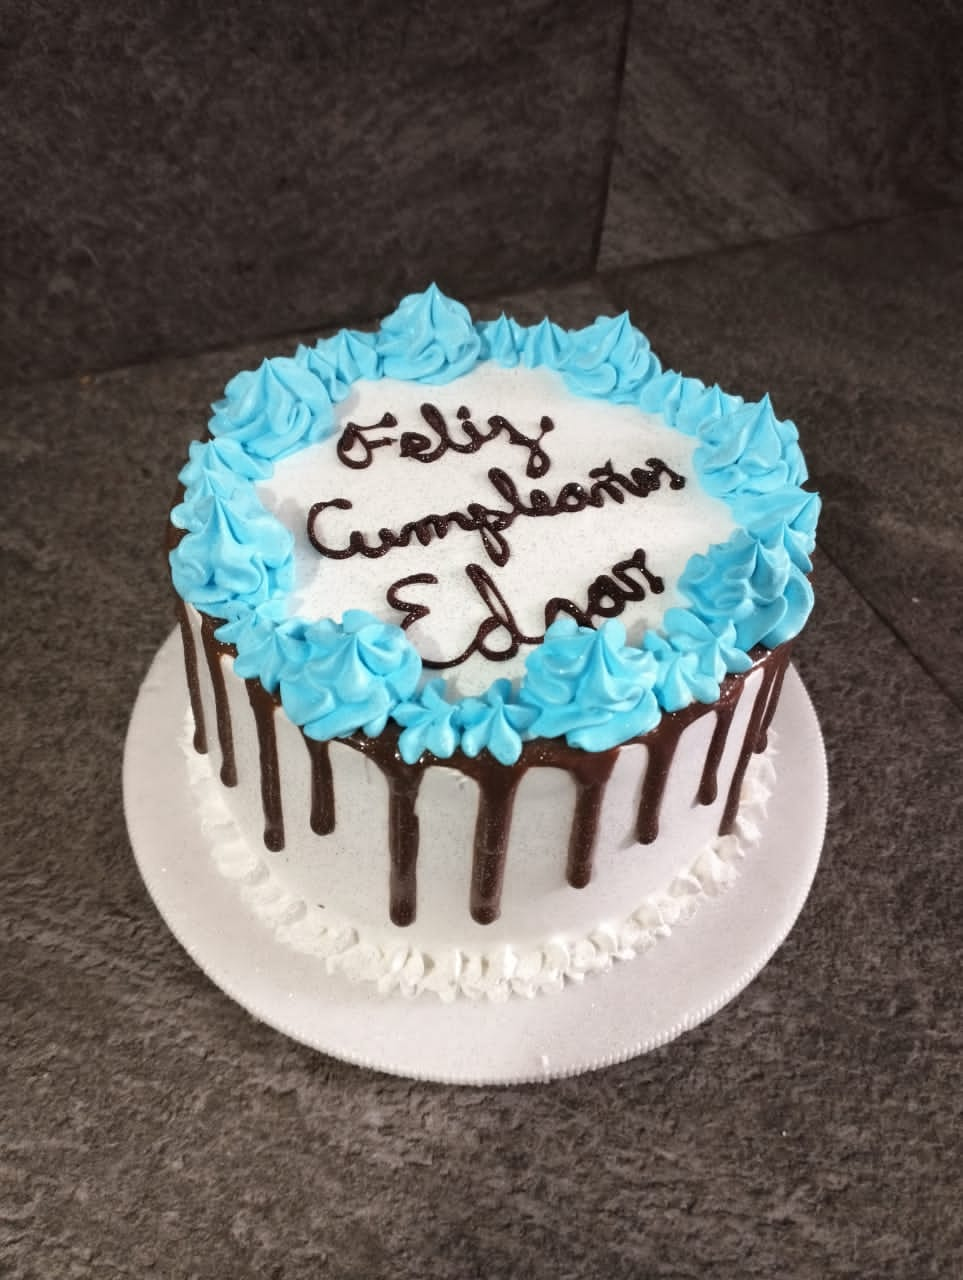 Feliz
Cumpleaños
Edgar